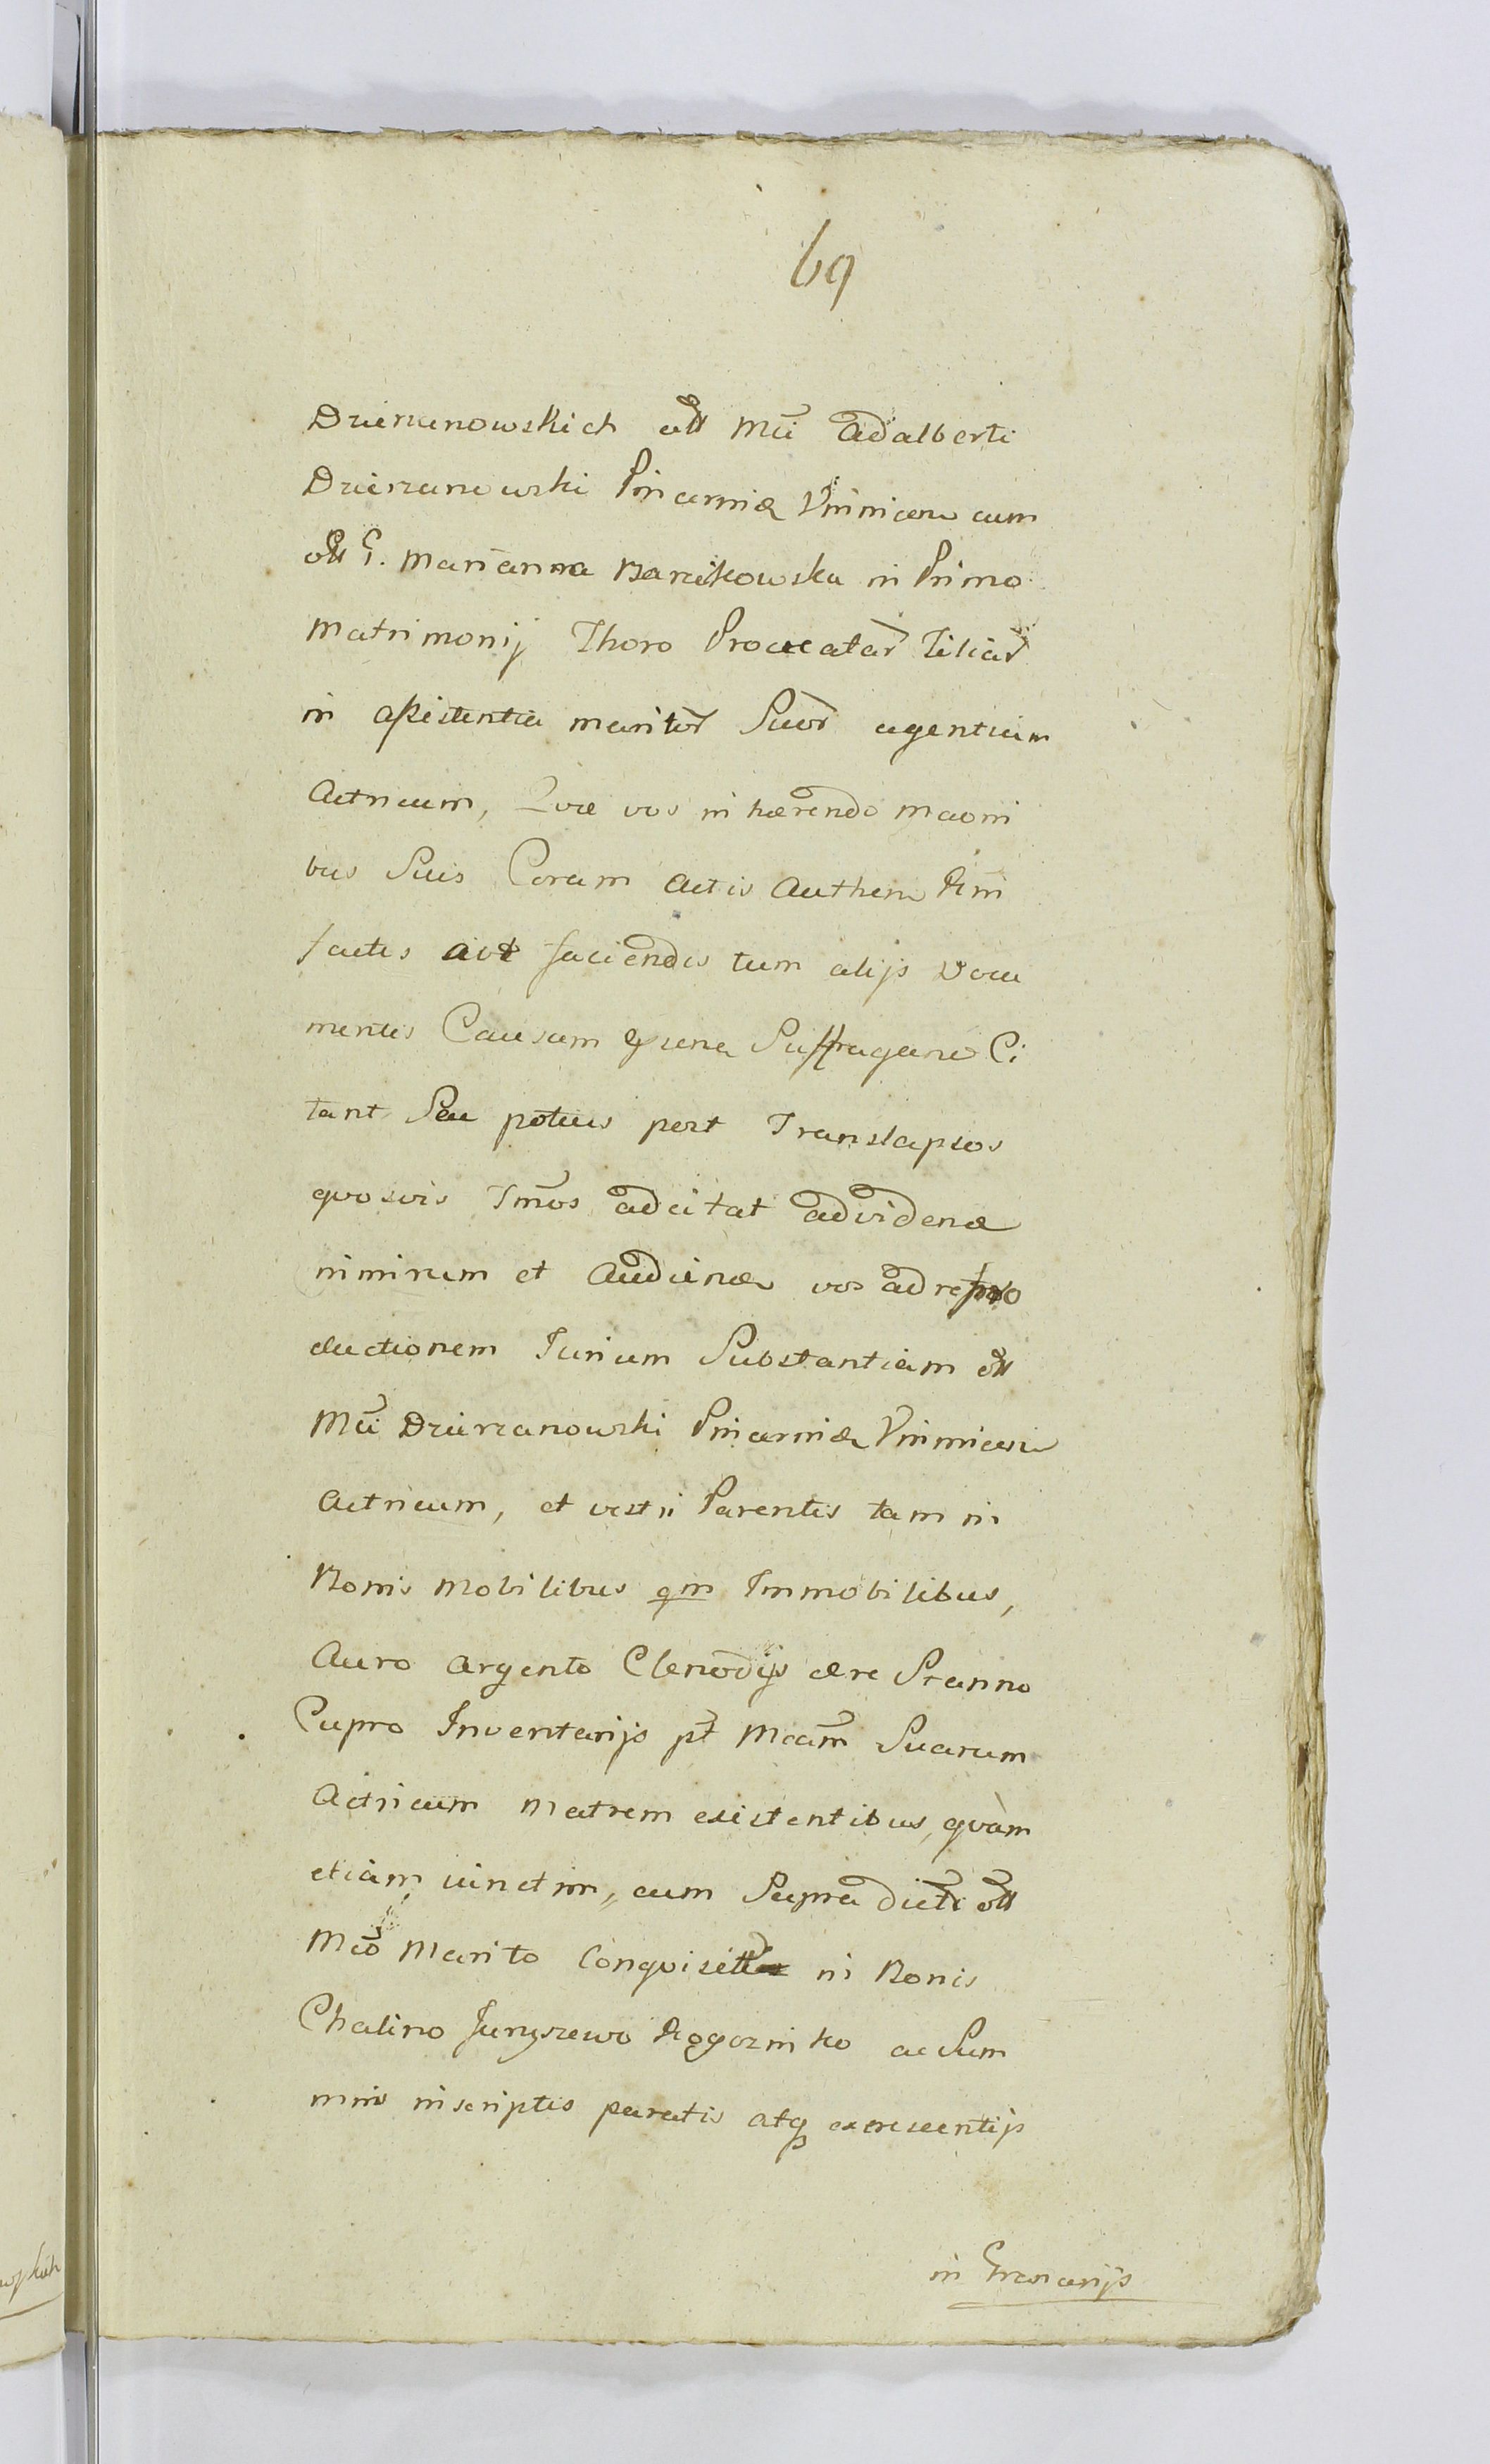 69
Dzierzanowskich olł Mci Adalberti
Dzierzanowski Pincernæ Vinnicen cum
olł G. Marianna Barcikowska in Primo
Matrimonij Thoro Procreatar Filiar
in assistentia maritor Suor agentium
Actricum, Qvæ vos in hærendo Maoni
bus Suis Coram Actis Authen
factis aut faciendis tum alijs Docu
mentis Causam Suffragane Ci
tant Seu potius post Translapsos
qvosvis Tmos adcitat advidend
nimirum et Audiend vos ad repro
ductionem Jurium Substantiam olł
Mci Dzierzanowski Pincernæ Vinnicen
Actricum, et vestri Parentis tam in
Bonis Mobilibus qm Immobilibus,
Auro Argento Clenodijs ære Stanno
Cupro Inventarijs pt Mcam Suarum
Actricum Matrem existentibus, qvàm
etiam iunctim, cum Supra dicto olł
Mco Marito Conqvisit in Bonis
Chalino Juryszewo Rogozinko ac Sum
mis inscriptis paratis atq excrescentijs
in Granarijs